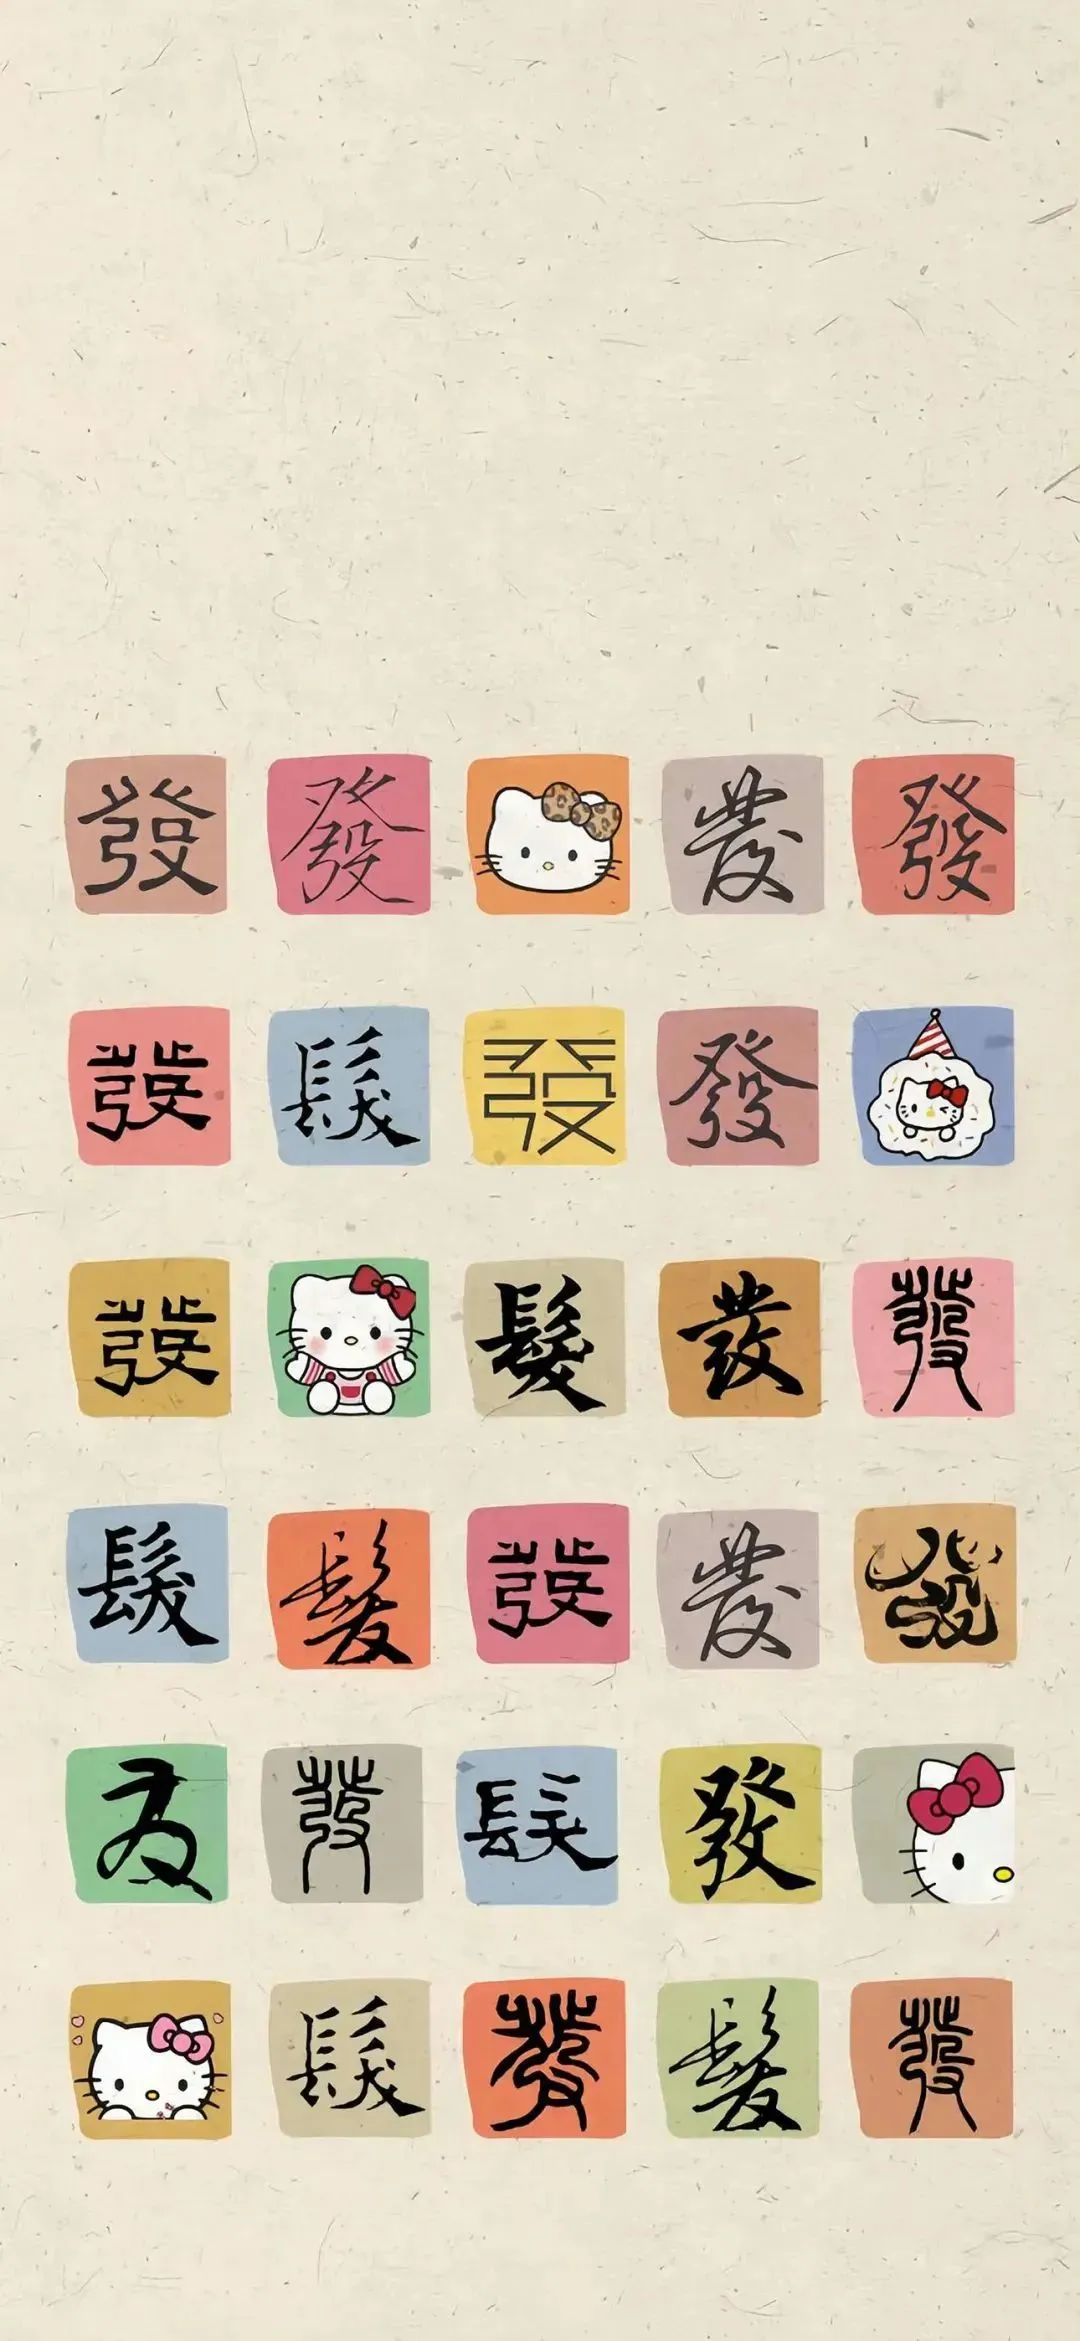 發 發 發 發
發 髮 發 發
發 髮 發 發
髮 髮 發 發 發
发 發 髮 發
髮 發 髮 發